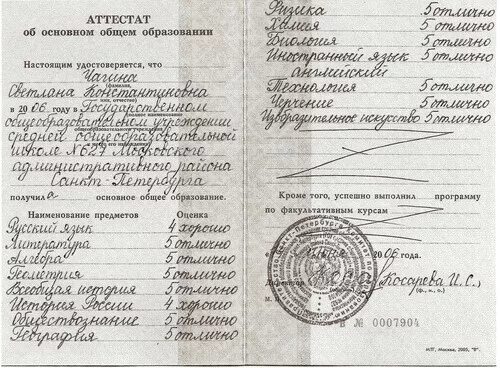 АТТЕСТАТ
об основном общем образовании
Настоящим удостоверяется, что
Чагина
(фамилия,
Светлана Константиновна
имя, отчество)
в 2006 году в Государственном
общеобразовательном учреждении
средней общеобразовательной
школе №627 Московского
административного района
Санкт-Петербурга
получила основное общее образование.
Наименование предметов Оценка
Русский язык 4 хорошо
Литература 5 отлично
Алгебра 5 отлично
Геометрия 5 отлично
Всеобщая история 5 отлично
История России 4 хорошо
Обществознание 5 отлично
География 5 отлично
Физика 5 отлично
Химия 5 отлично
Биология 5 отлично
Иностранный язык 5 отлично
английский
Технология 5 отлично
Черчение 5 отлично
Изобразительное искусство 5 отлично
Кроме того, успешно выполнил программу
по факультативным курсам
июня 2006 года.
Директор Косарева И.С.
(ф., и., о.)
М. П.
В № 0007904
МПГ, Москва, 2005, "В".